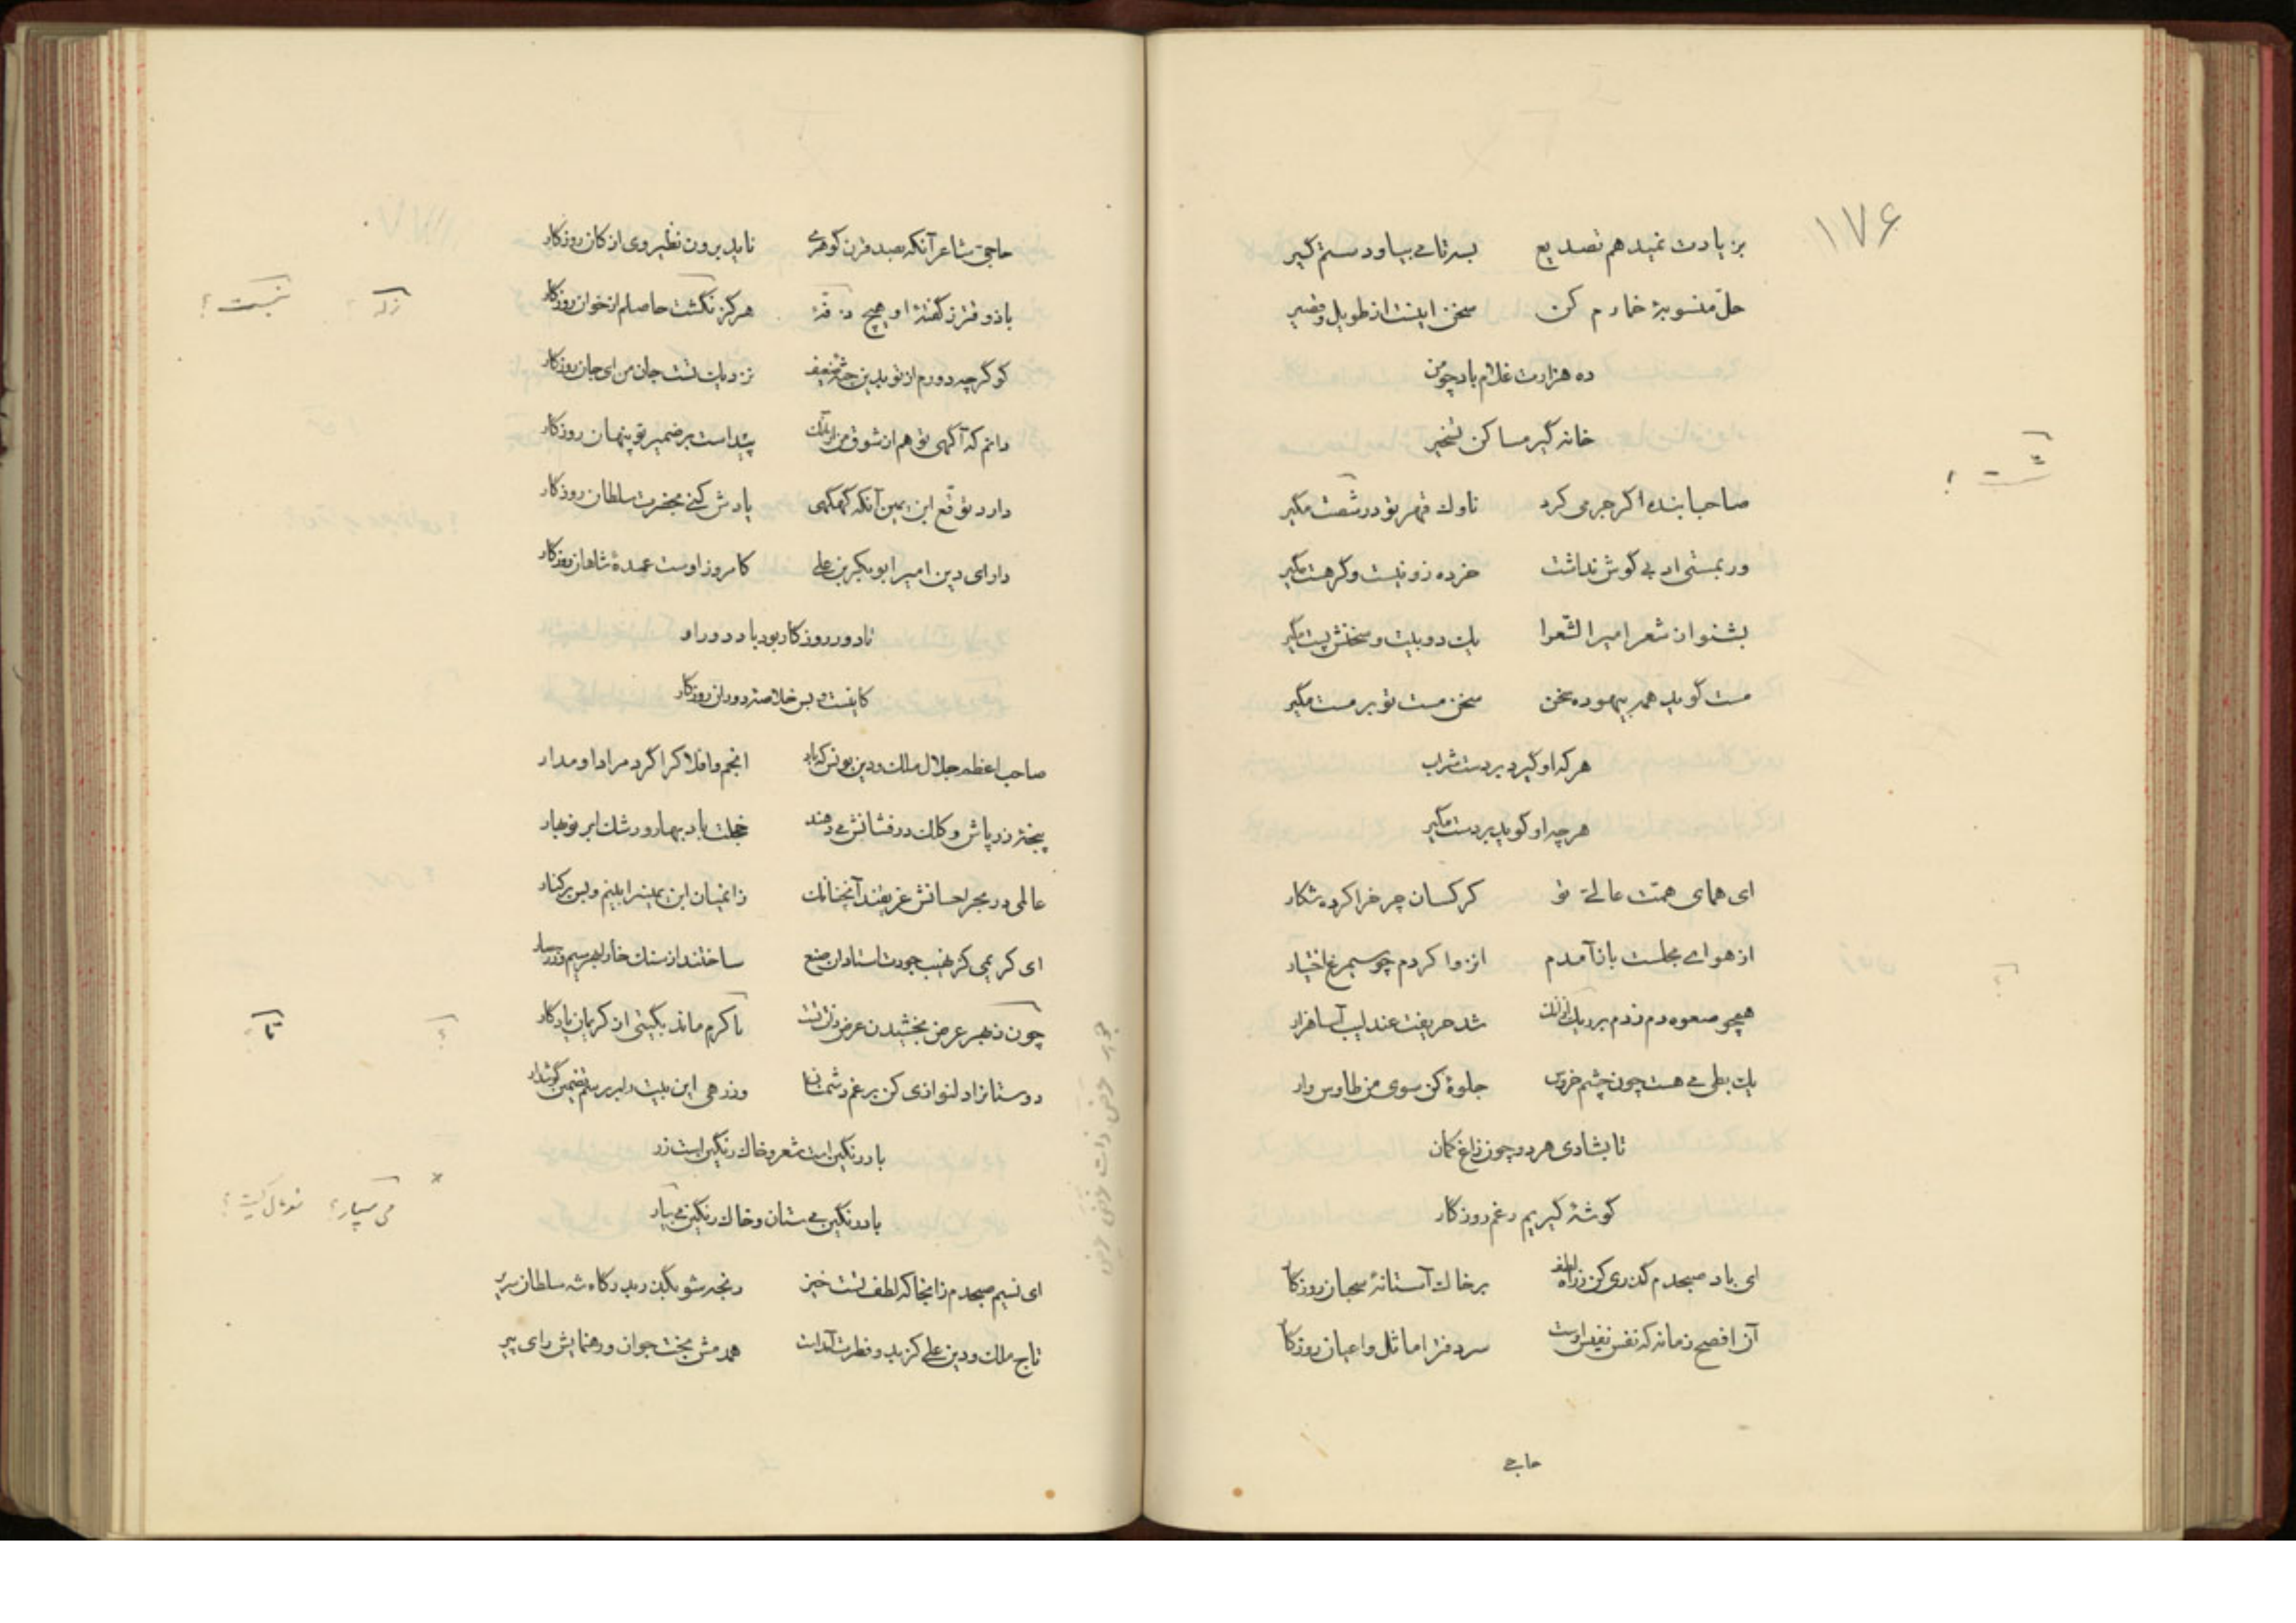 ۱۷۶
بز یادت نمیدهم تصدیع بسر تا می بیا و دستم گیر
حلّ منسوبهٔ خمارم کن سخن اینست از طویل و قصیر
ده هزارت غلام باد چو من
خانه گیر مساکن تسخیر
صاحبا بنده اکر جرمی کرد ناوك قهر تو در شصت مگیر
ور بمستی ادبی گوش نداشت خرده زو نیست و گر هست مگیر
بشنو از شعر امیر الشعرا یك دو بیت و سخنش پست مگیر
مست گوید همه بیهوده سخن سخن مست تو بر مست مگیر
هر که او گیرد بر دست شراب
هر چه او گوید بر دست مگیر
ای همای همّت عالے تو کرکسان چرخرا کرده شکار
از هوای مجلست باز آمدم انزوا کردم چو سیمرغ اختیار
همچو صعوه دم زدم بر دیك شد حریفت عندلیب آسا هزار
یك بطی می هست چون چشم خروس جلوهٔ کن سوی من طاوس وار
تا بشادی هر دو چون زاغ کمان
گوشهٔ گیریم رغم روزگار
ای باد صبحدم گذری کن ز راه لطف بر خاك آستانهٔ سحبان روزگار
آن افصح زمانه که نفس نفیس اوست سردفتر اماثل و اعیان روزگار
حاجے
حاجی شاعر آنکه بصد قرن گوهری ناید برون نظیر وی از کان روزگار
با ذوقتر ز گفتهٔ او هیچ هرگز نگشت حاصلم از خوان روزگار
کو گرچه دورم از تو بدین نزدیك تست جان من ای جان روزگار
دانم که آگهی تو هم از شوق من پیداست بر ضمیر تو پنهان روزگار
دارد توقّع ابن یمین آنکه گهگهی یادش کنی بحضرت سلطان روزگار
دارای دین امیر ابوبکر بن علی کامروز اوست عمدهٔ شاهان روزگار
تا دور روزگار بود باد دور او
کاینست و بس خلاصهٔ دوران روزگار
صاحب اعظم جلال ملك و دین یونس که باد انجم و افلاکرا گرد مراد او مدار
پنجهٔ زرپاش و کلك درفشانش می دهند خجلت باد بهار و رشك ابر نوبهار
عالمی در بحر احسانش غریقند آنچنانك زانمیان ابن یمینرا بینم و بس برکنار
ای کریمی کز نهیب جودت استادان صنع ساختند از سنك خارا بهر سیم و زر
چون ز بهر عرض بخشیدن عرض در ذات تست با کرم ماند بگیتی از کریمان یادگار
دوستانرا دلنوازی کن برغم دشمنان وز رهی این بیت دلبر بر سبیل تضمین گوش دار
باد رنگین است شعر و خاك رنگین است زر
باد رنگین می ستان و خاك رنگین می بار
ای نسیم صبحدم زانجا که لطف تست خیز رنجه شو بگذر بدرگاه شه سلطان سریر
تاج ملك و دین علی کز بدو فطرت آمدست همدمش بخت جوان و رهنمایش رای پیر
تا